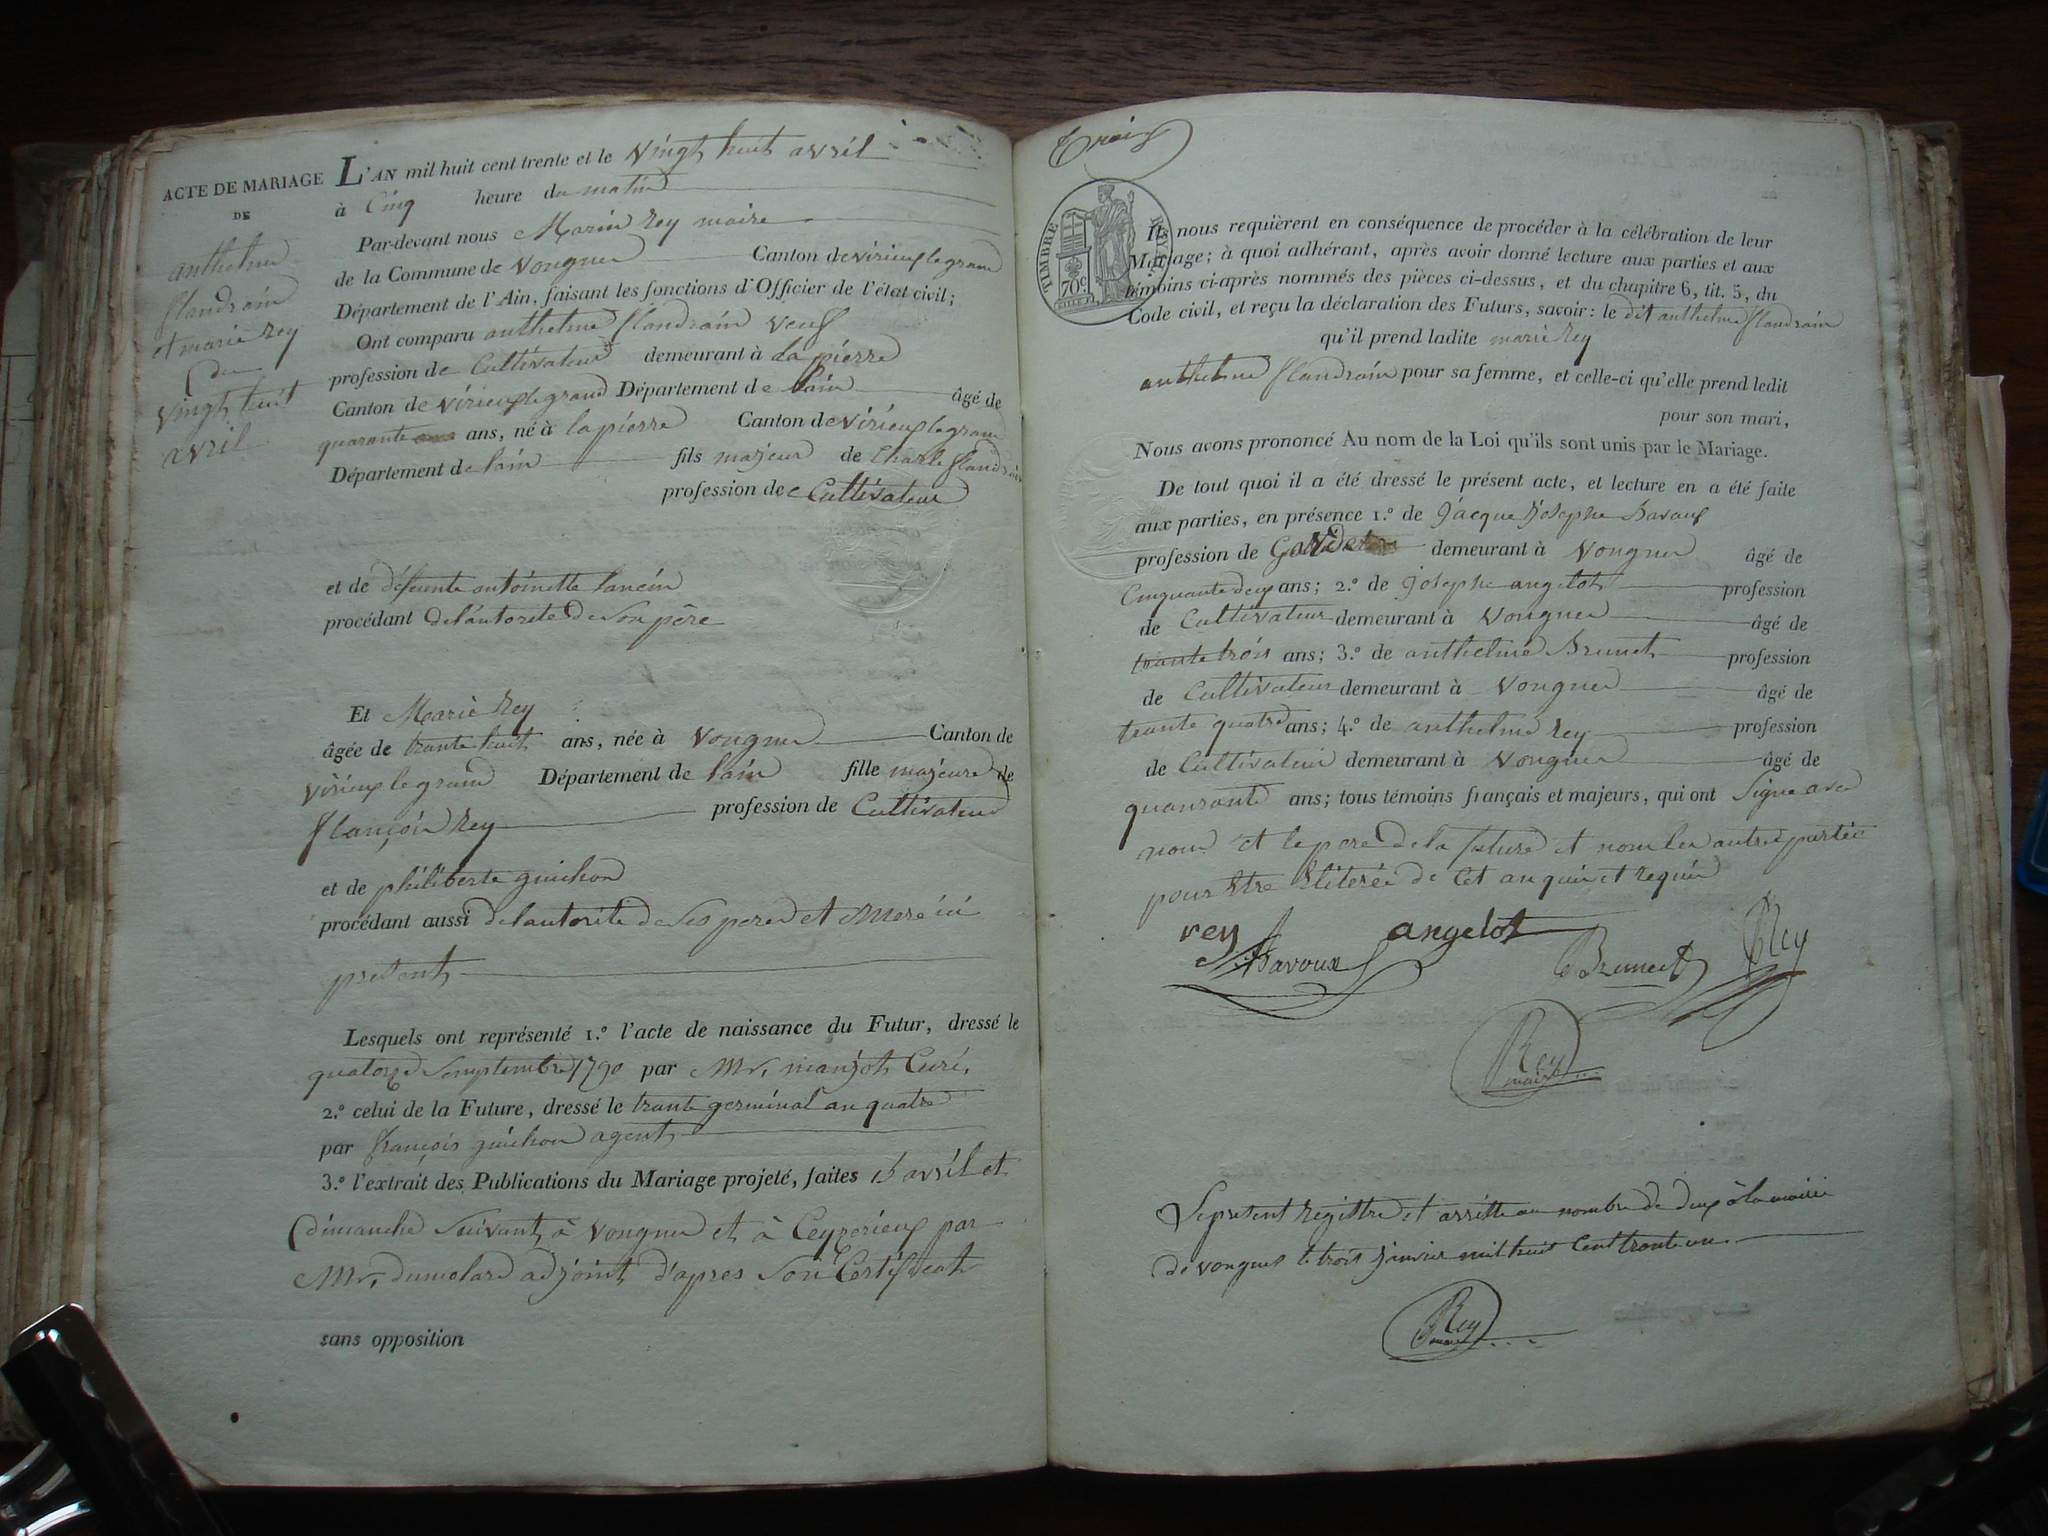 ACTE DE MARIAGE
DE
anthelme
flandrain
et marie rey
du
vingt huit
avril
L'AN mil huit cent trente et le vingt huit avril
à Cinq heure du matin
Par-devant nous Marin rey maire
de la Commune de vongne Canton de virieux le grand
Département de l'Ain, faisant les fonctions d'Officier de l'état civil;
Ont comparu anthelme flandrain veuf
profession de Cultivateur demeurant à la pierre
Canton de virieux le grand Département de lain âgé de
quarante ans, né à la pierre Canton de virieux le grand
Département de lain fils majeur de Charle flandrain
profession de Cultivateur
et de défeunte antoinette lancin
procédant de l'autorité de son père
Et Marie Rey
âgée de trante huit ans, née à vongne Canton de
virieux le grand Département de lain fille majeure de
françois rey profession de Cultivateur
et de philiberte guichon
procédant aussi de l'autorité de ses pere et Mere ici
present
Lesquels ont représenté 1.º l'acte de naissance du Futur, dressé le
quatorze semptembre 1790 par Mr. manjot Curé,
2.º celui de la Future, dressé le trante germinal an quatre
par françois guichon agent
3.º l'extrait des Publications du Mariage projeté, faites avril et
dimanche suivant à vongne et à Ceyzerieux par
Mr. dumolard adjoint d'apres son Certificat
sans opposition
Trois
TIMBRE ROYAL
70c
Ils nous requièrent en conséquence de procéder à la célébration de leur
Mariage; à quoi adhérant, après avoir donné lecture aux parties et aux
témoins ci-après nommés des pièces ci-dessus, et du chapitre 6, tit. 5, du
Code civil, et reçu la déclaration des Futurs, savoir: le dit anthelme flandrain
qu'il prend ladite marie rey
anthelme flandrain pour sa femme, et celle-ci qu'elle prend ledit
pour son mari,
Nous avons prononcé Au nom de la Loi qu'ils sont unis par le Mariage.
De tout quoi il a été dressé le présent acte, et lecture en a été faite
aux parties, en présence 1.º de Jacque Josephe Bavoux
profession de demeurant à vongne âgé de
Cinquante deux ans; 2.º de Josephe angelot profession
de Cultivateur demeurant à vongne âgé de
trante trois ans; 3.º de anthelme Brunet profession
de Cultivateur demeurant à vongne âgé de
trante quatre ans; 4.º de anthelme rey profession
de Cultivateur demeurant à vongne âgé de
quanrante ans; tous témoins français et majeurs, qui ont signé avec
nous et le pere de la future et non les autres partée
pour être de Cet an quis et requis
rey angelot
Bavoux Brunet Rey
Rey
maire
Le present registre et arrette au nombre de deux à la mairie
de vongne le trois janvier mil huit Cent trente un
Rey
maire